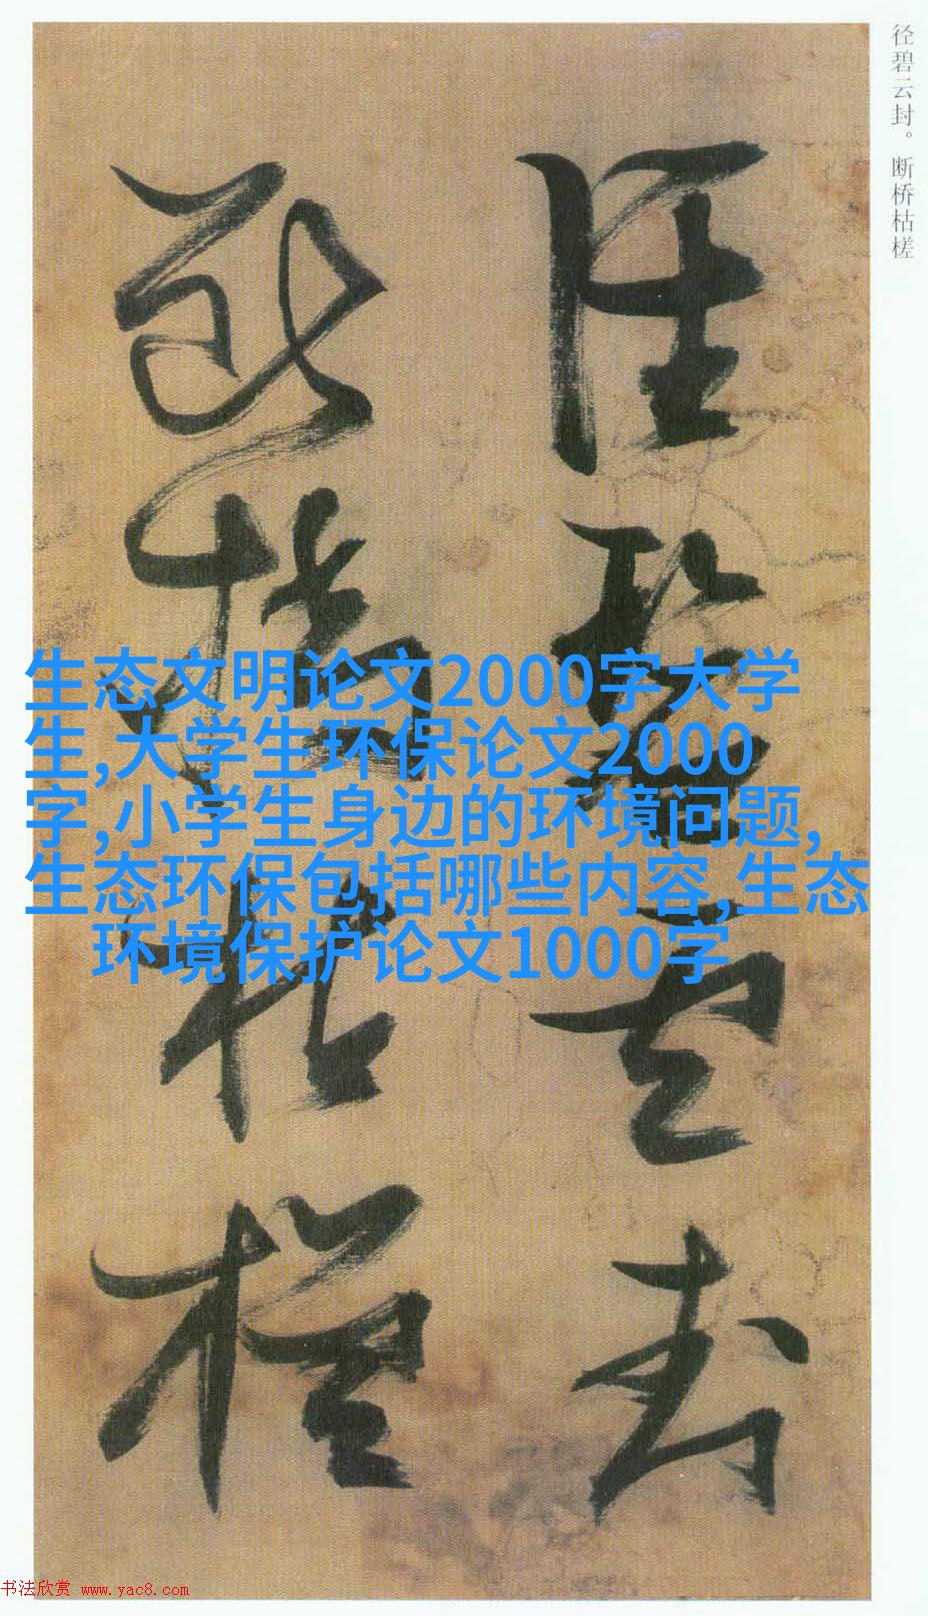 径碧云封。断桥枯槎
径碧云封
断桥枯槎
生态文明论文2000字大学
生,大学生环保论文2000
字,小学生身边的环境问题,
生态环保包括哪些内容,生态
环境保护论文1000字
书法欣赏 www.yac8.com